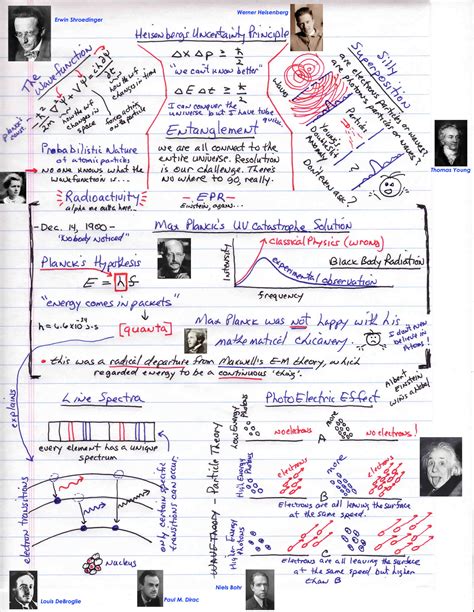 Erwin Shroedinger
Werner Heisenberg
Heisenberg's Uncertainty Principle
Δx Δp ≥ ħ/2
"we can't know better"
Δt ΔE ≥ ħ/2
I can conquer the
universe but I have to be
quick
The
Wavefunction
how the wf
changes in
space
how the wf
changes in time
force acting
on the particle
Silly
Superposition
are electrons particles or waves?
are photons particles or waves?
Waves
Particles
Thomas Young
Probabilistic Nature
of atomic particles
no one knows what the
wavefunction is...
Entanglement
we are all connect to the
entire universe. Resolution
is our challenge. There's
no where to go really.
Don't even ask?
Radioactivity
alpha me outta here...
EPR
Einstein, again...
Dec. 14, 1900 -
"Nobody noticed"
Max Planck's UV Catastrophe Solution
classical Physics (wrong)
Black Body Radiation
experimental observation
intensity
frequency
Planck's Hypothesis
E = hf
"energy comes in packets"
h = 6.6x10⁻³⁴ J·s
quanta
Max Planck was not happy with his
mathematical chicanery.
I don't even
believe in
Atoms!
• this was a radical departure from Maxwell's E-M theory, which
regarded energy to be a continuous 'thing'.
Albert
Einstein
wins a Nobel
explains
Line Spectra
every element has a unique
spectrum
electron transitions
only certain specific
transitions can occur.
nucleus
PhotoElectric Effect
Wave Theory - Particle Theory
Low Energy
Photons
no electrons
more
no electrons!
A
High Energy
Photons
electrons
more
electrons
B
Electrons are all leaving the surface
at the same speed.
Higher Energy
Photons
electrons
more
electrons
C
electrons are all leaving the surface
at the same speed but higher
than B
Louis DeBroglie
Paul M. Dirac
Niels Bohr